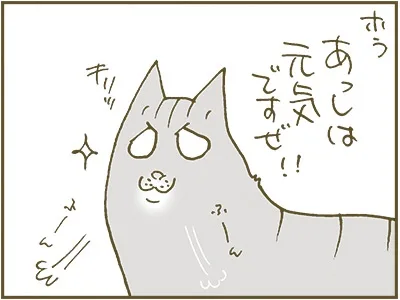 ホラ
あっしは
元気
ですぜ!!
キリッ
ふーん
ふーん